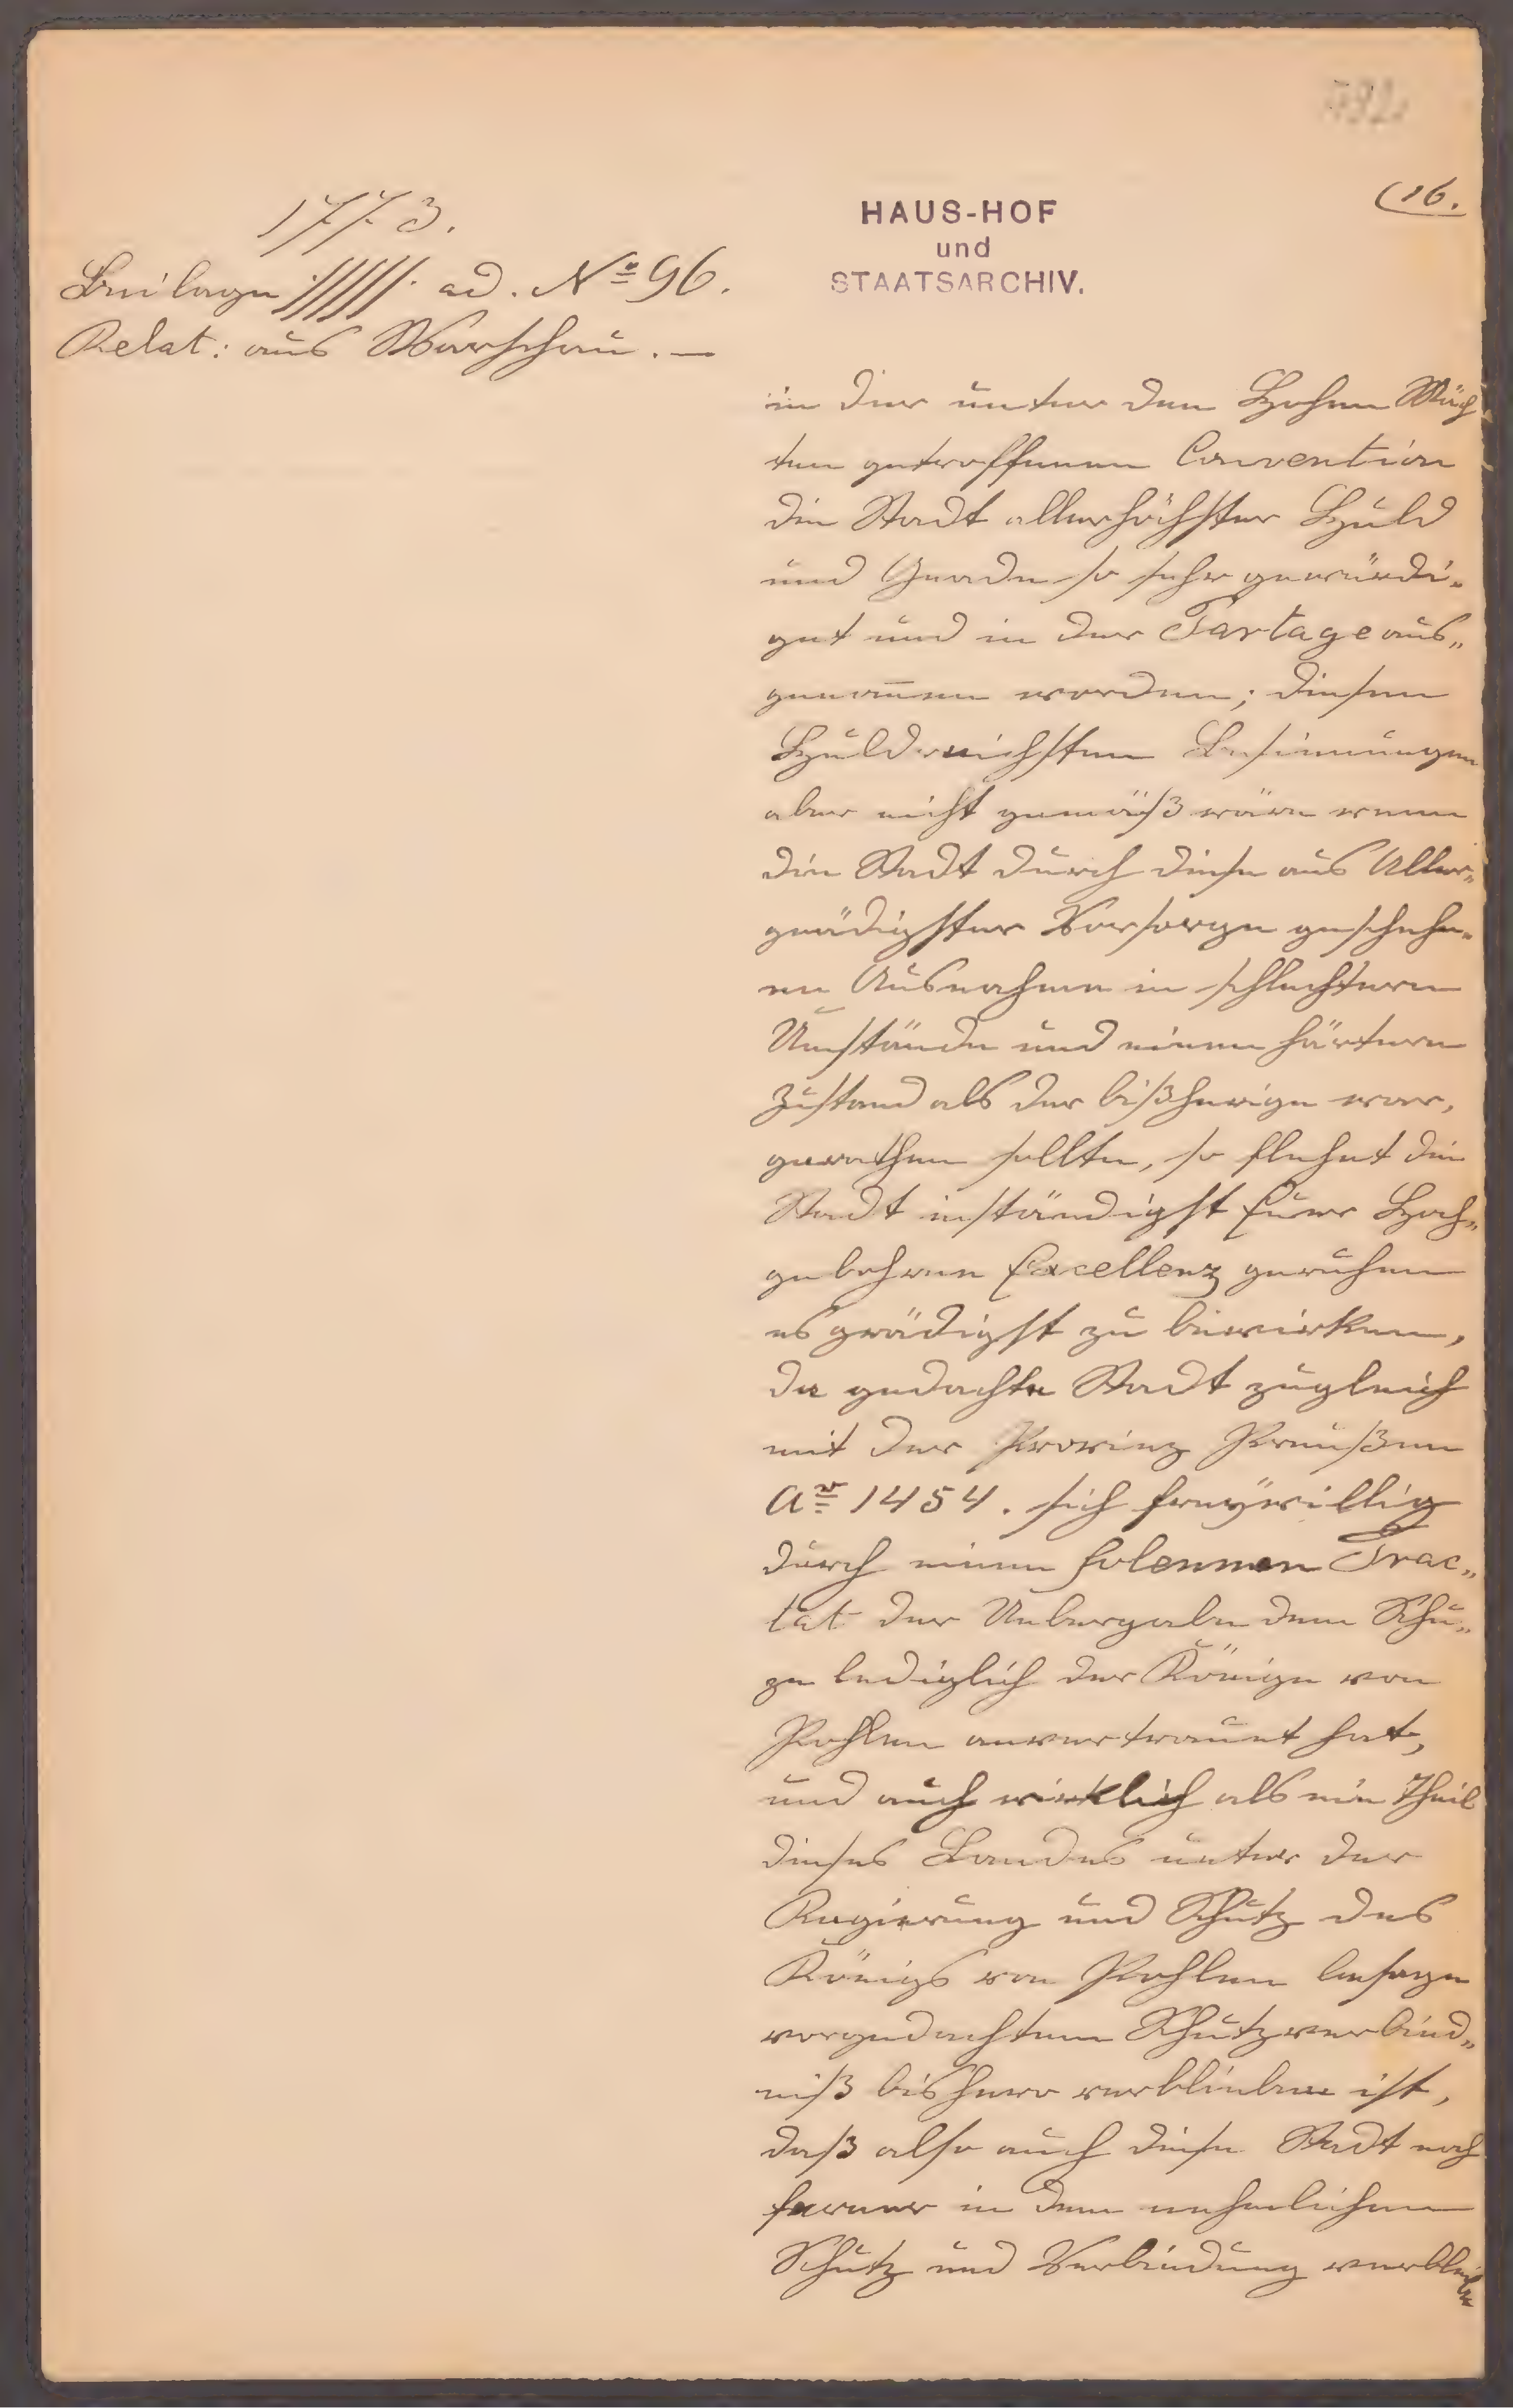 (16.
1773.
HAUS-HOF
und
STAATSARCHIV.
Beilage ad. No 96.
Relat: aus Warschau. —
in der unter den Hohen Mäch
ten getroffenen Convention
die Stadt allerhöchster Huld
und Gnade so sehr gewürdi„
get und in der Partage aus„
genom̄en worden; diesen
Huldreichsten Gesinnungen
aber nicht gemäß wäre wenn
die Stadt durch diese aus Aller„
gnädigster Vorsorge geschehe„
ne Ausnahme in schlechtern
Umstände und einen härtern
Zustand als der bißherige war,
gerathen sollte, so flehet die
Stadt inständigst Euer Hoch„
gebohrne Excellenz geruhen
es gnädigst zu bewirken,
da gedachte Stadt zugleich
mit der Provinz Preußen
Ao 1454. sich freÿwillig
durch einen solennen Trac„
tat der Uebergabe dem Schu„
ze lediglich der Könige von
Pohlen anvertrauet hat,
und auch wirklich als ein Theil
dieses Landes unter der
Regierung und Schutz des
Königs von Pohlen besage
vorgedachtem Schutzverbind„
niß bishero verblieben ist,
daß also auch diese Stadt noch
ferner in dem nehmlichen
Schutz und Verbindung verbleibe